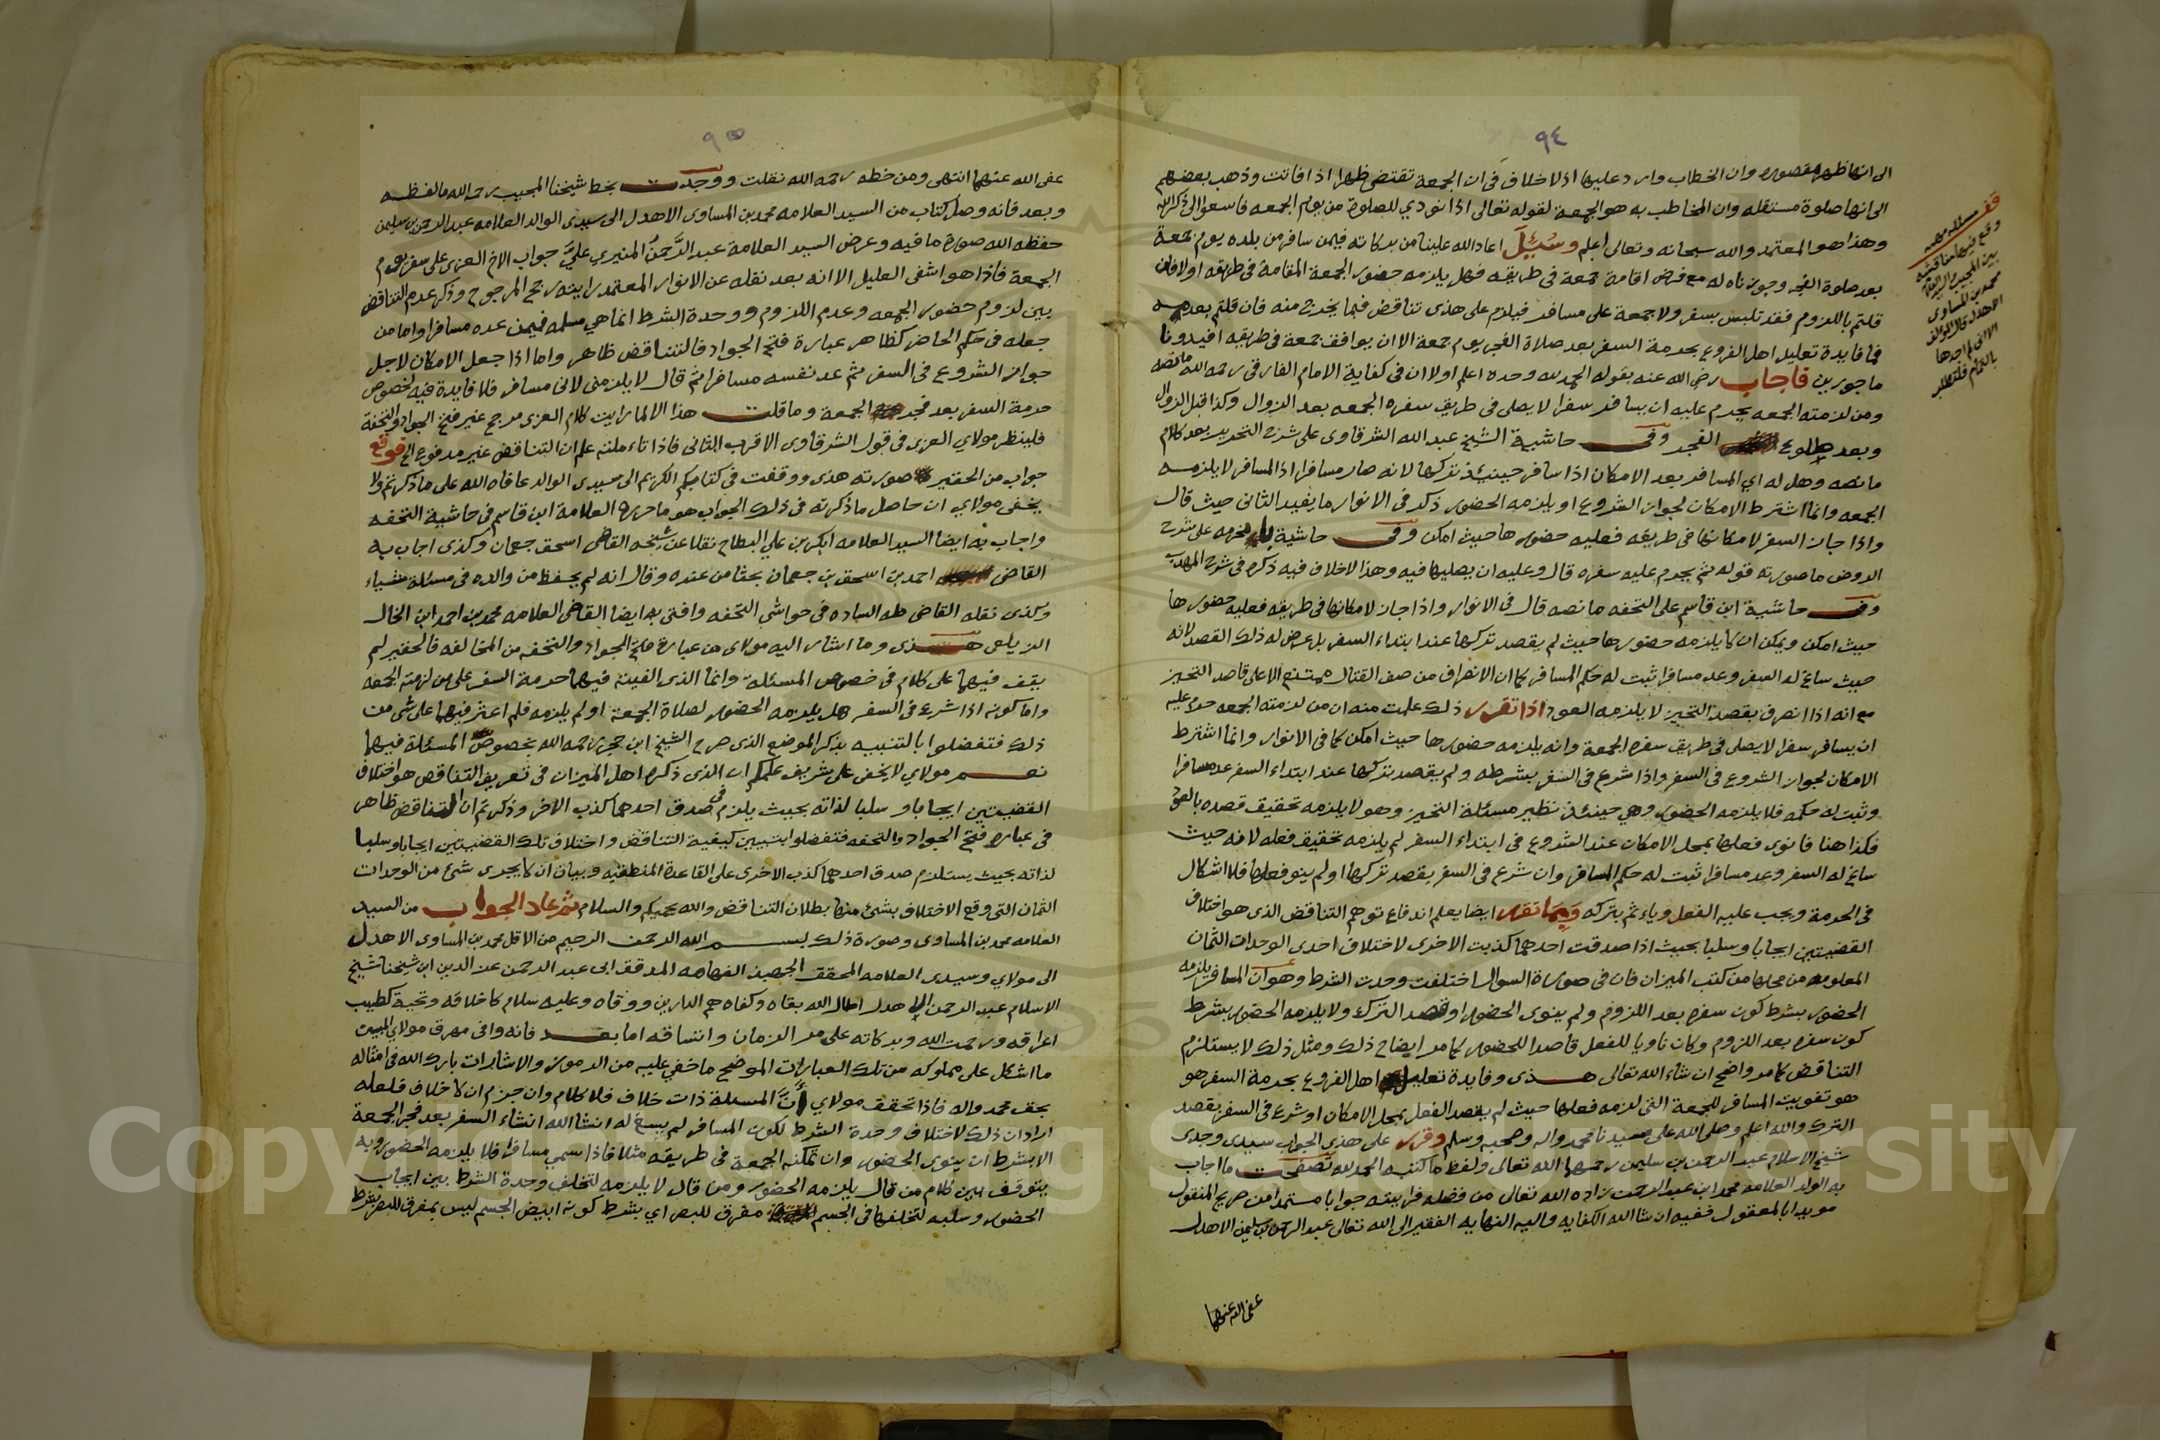 ٩٤
الى انها ظهر مقصوره وان الخطاب وارد عليها اذ لا خلاف في ان الجمعة تقتضى ظهرا اذا فاتت وذهب بعضهم
الى انها صلوة مستقله وان المخاطب به هو الجمعة لقوله تعالى اذا نودي للصلوة من يوم الجمعه فاسعوا الى ذكر الله
وهذا هو المعتمد والله سبحانه وتعالى اعلم وسُئِلَ اعاد الله علينا من بركاته فيمن سافر من بلده يوم جمعة
بعد صلوة الفجر وجوزناه له مع فرض اقامة جمعة في طريقه فهل يلزمه حضور الجمعة المقامة في طريقه اولا فان
قلتم باللزوم فقد تلبس بسفر ولا جمعة على مسافر فيلزم على هذى تناقض فيما يخرج منه فان قلتم بعدمه
فما فايدة تعليل اهل الفروع بحرمة السفر بعد صلاة الفجر يوم جمعة الا ان يوافق جمعة في طريقه افيدونا
ماجورين فاجاب رضى الله عنه بقوله الحمد لله وحده اعلم اولا ان في كفاية الامام الفارقى رحمه الله ما نصه
ومن لزمته الجمعه يحرم عليه ان يسافر سفرا لا يصلى في طريق سفره الجمعه بعد الزوال وكذا قبل الزوال
وبعد طلوع الفجر وفى حاشية الشيخ عبد الله الشرقاوى على شرح التحرير بعد كلام
ما نصه وهل له اي المسافر بعد الامكان اذا سافر حينئذ تركها لانه صار مسافرا اذ المسافر لا يلزمه
الجمعه وانما اشترط الامكان لجواز الشروع او يلزمه الحضور ذكر في الانوار ما يفيد الثانى حيث قال
واذا جاز السفر لامكانها في طريقه فعليه حضورها حيث امكن وفى حاشية با مخرمه على شرح
الروض ما صورته قوله ثم يحرم عليه سفره قال وعليه ان يصليها فيه وهذا لا خلاف فيه ذكره في شرح المهذب
وفى حاشية ابن قاسم على التحفه ما نصه قال في الانوار واذا جاز لامكانها في طريقه فعليه حضورها
حيث امكن ويمكن ان لا يلزمه حضورها حيث لم يقصد تركها عند ابتداء السفر بل عرض له ذلك القصد لانه
حيث ساغ له السفر وعد مسافرا ثبت له حكم المسافر كما ان الانصراف من صف القتال ممتنع الا على قاصد التحيز
مع انه اذا انصرف بقصد التحيز لا يلزمه العود اذا تقرر ذلك علمت منه ان من لزمته الجمعه حرم عليه
ان يسافر سفرا لا يصلى في طريق سفره الجمعة وانه يلزمه حضورها حيث امكن كما في الانوار وانما اشترط
الامكان لجواز الشروع في السفر واذا شرع في السفر بشرطه ولم يقصد تركها عند ابتداء السفر عد مسافرا
وثبت له حكمه فلا يلزمه الحضور وهي حينئذ نظير مسئلة التحيز وهو لا يلزمه تحقيق قصده بالعود
فكذا هنا فانوى فعلها بمحل الامكان عند الشروع في ابتداء السفر لم يلزمه تحقيق فعله لانه حيث
ساغ له السفر وعد مسافرا ثبت له حكم المسافر وان شرع في السفر بقصد تركها اولم ينو فعلها فلا اشكال
في الحرمة ويجب عليه الفعل وياءثم بتركه وبما تقرر ايضا يعلم اندفاع توهم التناقض الذى هو اختلاف
القضيتين ايجابا وسلبا بحيث اذا صدقت احدهما كذبت الاخرى لاختلاف احدى الوحدات الثمان
المعلومه من محلها من كتب الميزان فان في صورة السوال اختلفت وحدت الشرط وهو ان المسافر يلزمه
الحضور بشرط كون سفره بعد اللزوم ولم ينوى الحضور او قصد الترك ولا يلزمه الحضور بشرط
كون سفره بعد اللزوم وكان ناويا للفعل قاصدا للحضور كما مر ايضاح ذلك ومثل ذلك لا يستلزم
التناقض كما مر واضح ان شاء الله تعالى هذى وفايدة تعليل اهل الفروع بحرمة السفر هو
هو تفويت المسافر للجمعة التى لزمه فعلها حيث لم يقصد الفعل بمحل الامكان او شرع في السفر بقصد
الترك والله اعلم وصلى الله على سيدنا محمد واله وصحبه وسلم وقرر على هذى الجواب سيدى وجدى
شيخ الاسلام عبد الرحمن بن سليمن رحمهما الله تعالى ولفظ ما كتبه الحمد لله تصفحت ما اجاب
به الولد العلامه محمد ابن عبد الرحمن زاده الله تعالى من فضله فرايته جوابا مستمدا من صريح المنقول
مويدا بالمعقول ففيه ان شا الله الكفايه واليه النهايه الفقير الى الله تعالى عبد الرحمن بن سليمن الاهدل
عفى الله عنهما
قف
مسئله مهمه
وقع فيها مناقشه
بين المجيب والسيد
محمد بن المساوى
الاهدل
الا انى لم اجدها
بالتمام فلتطلب
٩٥
عفى الله عنهما انتهى ومن خطه رحمه الله نقلت ووجدت بخط شيخنا المجيب رحمه الله ما لفظه
وبعد فانه وصل كتاب من السيد العلامه محمد بن المساوى الاهدل الى سيدى الوالد العلامه عبد الرحمن بن سليمن
حفظه الله صورة ما فيه وعرض السيد العلامة عبد الرَّحمن المنيري عليَّ جواب الاخ العزى على سفر يوم
الجمعة فاذا هو اشفى العليل الا انه بعد نقله عن الانوار المعتمد رايته رجح المرجوح وذكر عدم التناقض
بين لزوم حضور الجمعه وعدم اللزوم ووحدة الشرط انما هي مسلمه فيمن عده مسافرا واما من
جعله في حكم الحاضر كظاهر عبارة فتح الجواد فالتناقض ظاهر واما اذا جعل الامكان لاجل
جواز الشروع في السفر ثم عد نفسه مسافرا ثم قال لا يلزمنى لانى مسافر فلا فايدة فيه لخصوص
حرمة السفر بعد فجر الجمعة وما قلت هذا الا لما رايت كلام العزى مرجح غير فتح الجواد والتحفة
فلينظر مولاي العزى في قول الشرقاوى الاقرب الثانى فاذا تاءملته علم ان التناقض غير مدفوع الخ فوقع
جواب من الحقير صورته هذى ووقفت في كتابكم الكريم الى سيدى الوالد عافاه الله على ما ذكرتم ولا
يخفى مولاي ان حاصل ما ذكرته في ذلك الجواب هو ما حرره العلامة ابن قاسم في حاشية التحفه
واجاب به ايضا السيد العلامه ابكر بن علي البطاح نقلا عن شيخه القاضى اسحق جعمان وكذى اجاب به
القاضى احمد بن اسحق بن جعمان بحثا من عنده وقال انه لم يحفظ من والده في مسئلة شياء
وكذى نقله القاضى طه الساده في حواشي التحفه وافتى به ايضا القاضى العلامه محمد بن احمد ابن الخال
الزيلعى هذى وما اشار اليه مولاى من عبارة فتح الجواد والتحفه من المخالفه فالحقير لم
يقف فيهما على كلام في خصوص المسئله وانما الذى الفيته فيهما حرمة السفر على من لزمته الجمعه
واما كونه اذا شرع في السفر هل يلزمه الحضور لصلاة الجمعة اولم يلزمه فلم اعثر فيهما على شي من
ذلك فتفضلوا بالتنبيه بذكر الموضع الذى صرح الشيخ ابن حجر رحمه الله بخصوص المسئلة فيهما
نعم مولاي لا يخفى على شريف علمكم ان الذى ذكره اهل الميزان في تعريف التناقض هو اختلاف
القضيتين ايجابا وسلبا لذاته بحيث يلزم في صدق احدهما كذب الاخر وذكرتم ان التناقض ظاهر
في عبارة فتح الجواد والتحفه فتفضلوا بتبيين كيفية التناقض واختلاف تلك القضيتين ايجابا وسلبا
لذاته بحيث يستلزم صدق احدهما كذب الاخرى على القاعدة المنطقيه وبيان ان لا يجرى شئ من الوحدات
الثمان التى وقع الاختلاف بشئ منها بطلان التناقض والله يحميكم والسلام ثم عاد الجواب من السيد
العلامه محمد بن المساوى وصورة ذلك بسم الله الرحمن الرحيم من الاقل محمد بن المساوى الاهدل
الى مولاي وسيدى العلامه المحقق الجهبذ الفهامه المدقق ابى عبد الرحمن عز الدين ابن شيخنا شيخ
الاسلام عبد الرحمن الاهدل اطال الله بقاه وكفاه هم الدارين ووقاه وعليه سلام كاخلاقه وتحية كطيب
اعراقه ورحمت الله وبركاته على مر الزمان وانساقه اما بعد فانه وافى مهرق مولاي المبين
ما اشكل على مملوكه من تلك العبارات الموضح ما خفي عليه من الرموز والاشارات بارك الله في امثاله
بحق محمد واله فاذا تحقق مولاي أنَّ المسئلة ذات خلاف فلا كلام وان جزم ان لا خلاف فلعله
اراد ان ذلك لاختلاف وحدة الشرط لكون المسافر لم يسغ له انشا الله انشاء السفر بعد فجر الجمعة
الا بشرط ان ينوى الحضور وان تمكنه الجمعة في طريقه مثلا فاذا سمي مسافرا فلا يلزمه الحضور وبه
يتوقف بين كلام من قال يلزمه الحضور ومن قال لا يلزمه لتخلف وحدة الشرط بين ايجاب
الحضور وسلبه لتخلفها في الجسم مفرق للبصر اي بشرط كونه ابيض الجسم ليس بمفرق للبصر بشرط